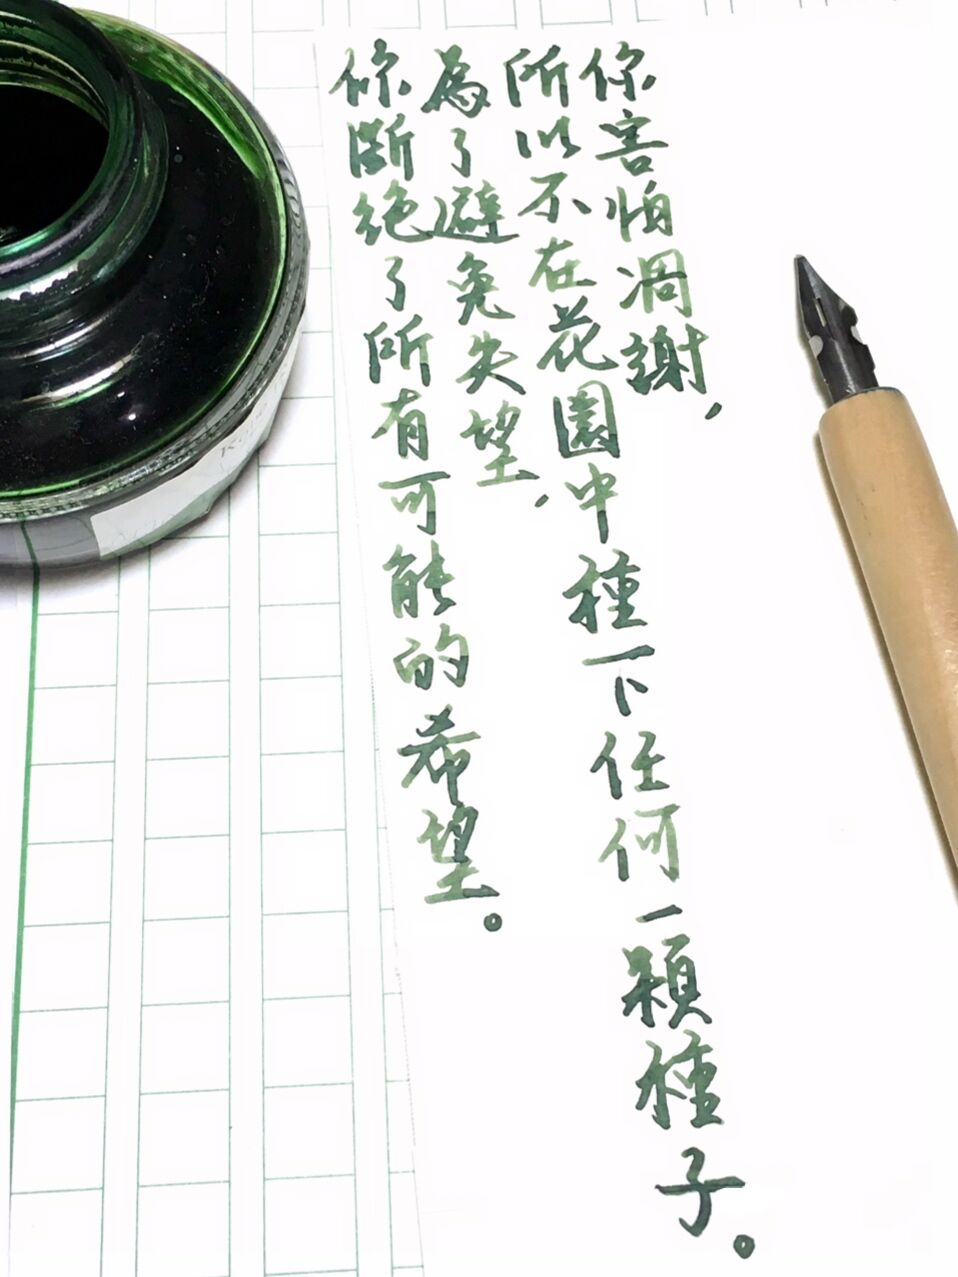 你害怕凋謝，
所以不在花園中種下任何一顆種子。
為了避免失望，
你斷絕了所有可能的希望。